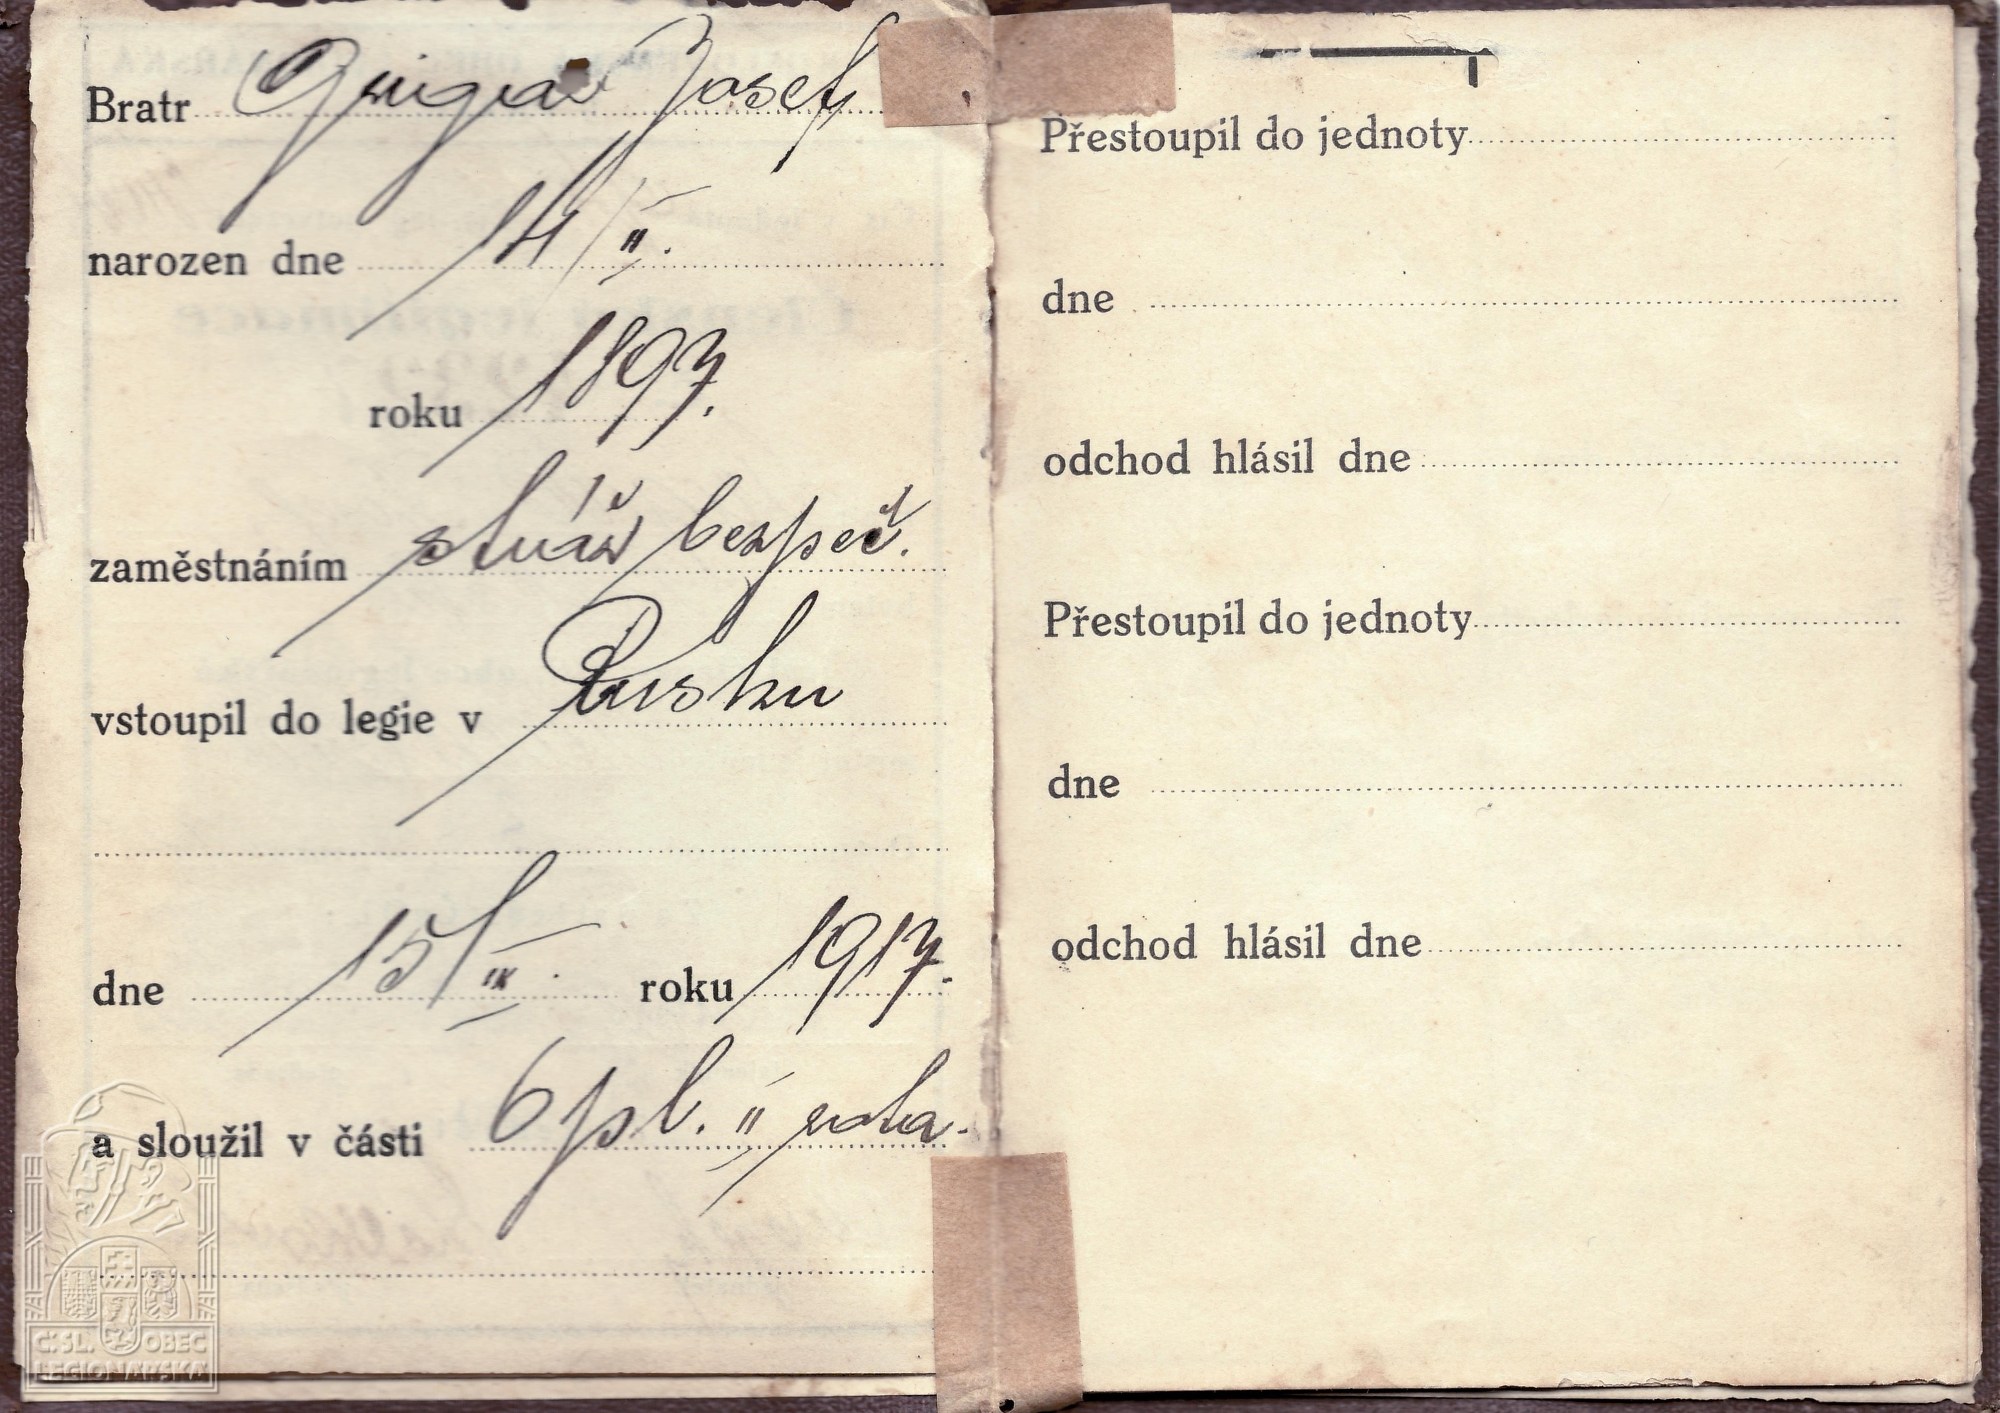 Bratr Josef
narozen dne 14/II.
roku 1897.
zaměstnáním stráž bezpeč.
vstoupil do legie v Rusku
dne 15/IX. roku 1917.
a sloužil v části 6 pl. II rota.
Č.SL. OBEC
LEGIONÁŘSKÁ
Přestoupil do jednoty
dne
odchod hlásil dne
Přestoupil do jednoty
dne
odchod hlásil dne